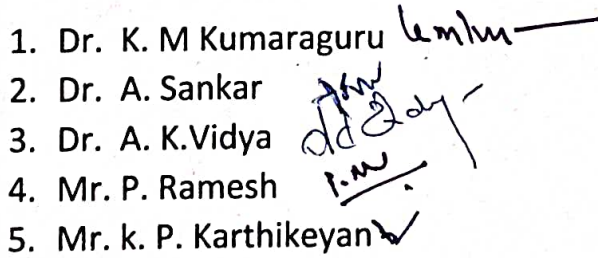 1. Dr. K. M Kumaraguru
2. Dr. A. Sankar
3. Dr. A. K.Vidya
4. Mr. P. Ramesh
5. Mr. k. P. Karthikeyan